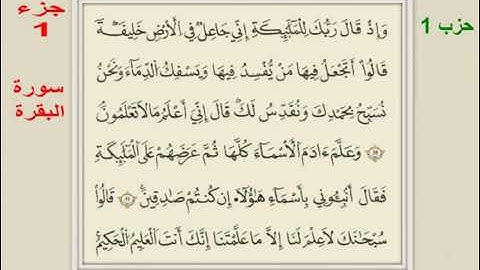 جزء
1
سورة
البقرة
حزب 1
وَإِذْ قَالَ رَبُّكَ لِلْمَلَٰٓئِكَةِ إِنِّي جَاعِلٌ فِي الْأَرْضِ خَلِيفَةً
قَالُوا أَتَجْعَلُ فِيهَا مَنْ يُفْسِدُ فِيهَا وَيَسْفِكُ الدِّمَاءَ وَنَحْنُ
نُسَبِّحُ بِحَمْدِكَ وَنُقَدِّسُ لَكَ قَالَ إِنِّي أَعْلَمُ مَا لَا تَعْلَمُونَ
وَعَلَّمَ ءَادَمَ الْأَسْمَاءَ كُلَّهَا ثُمَّ عَرَضَهُمْ عَلَى الْمَلَٰٓئِكَةِ
فَقَالَ أَنْبِئُونِي بِأَسْمَاءِ هَٰؤُلَاءِ إِن كُنتُمْ صَادِقِينَ قَالُوا
سُبْحَانَكَ لَا عِلْمَ لَنَا إِلَّا مَا عَلَّمْتَنَا إِنَّكَ أَنتَ الْعَلِيمُ الْحَكِيمُ